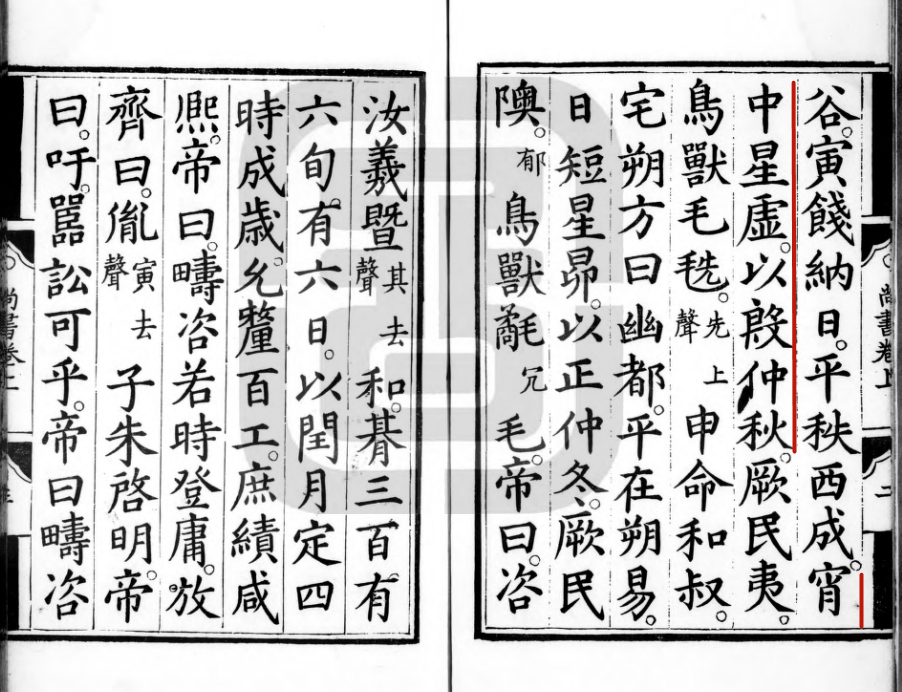 谷。寅餞納日。平秩西成。宵
中星虛。以殷仲秋。厥民夷。
鳥獸毛毨。先上聲申命和叔。
宅朔方曰幽都。平在朔易。
日短星昴。以正仲冬。厥民
隩。郁鳥獸氄冗毛。帝曰。咨
汝羲暨其去聲和。朞三百有
六旬有六日。以閏月定四
時成歳。允釐百工。庶績咸
熙。帝曰。疇咨若時登庸。放
齊曰。胤寅去聲子朱啓明。帝
曰。吁。嚚訟可乎。帝曰疇咨